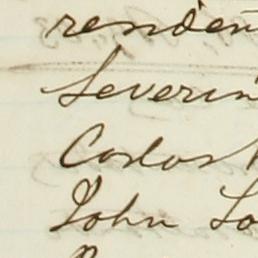 residen
Severin
Carlos
John Lo